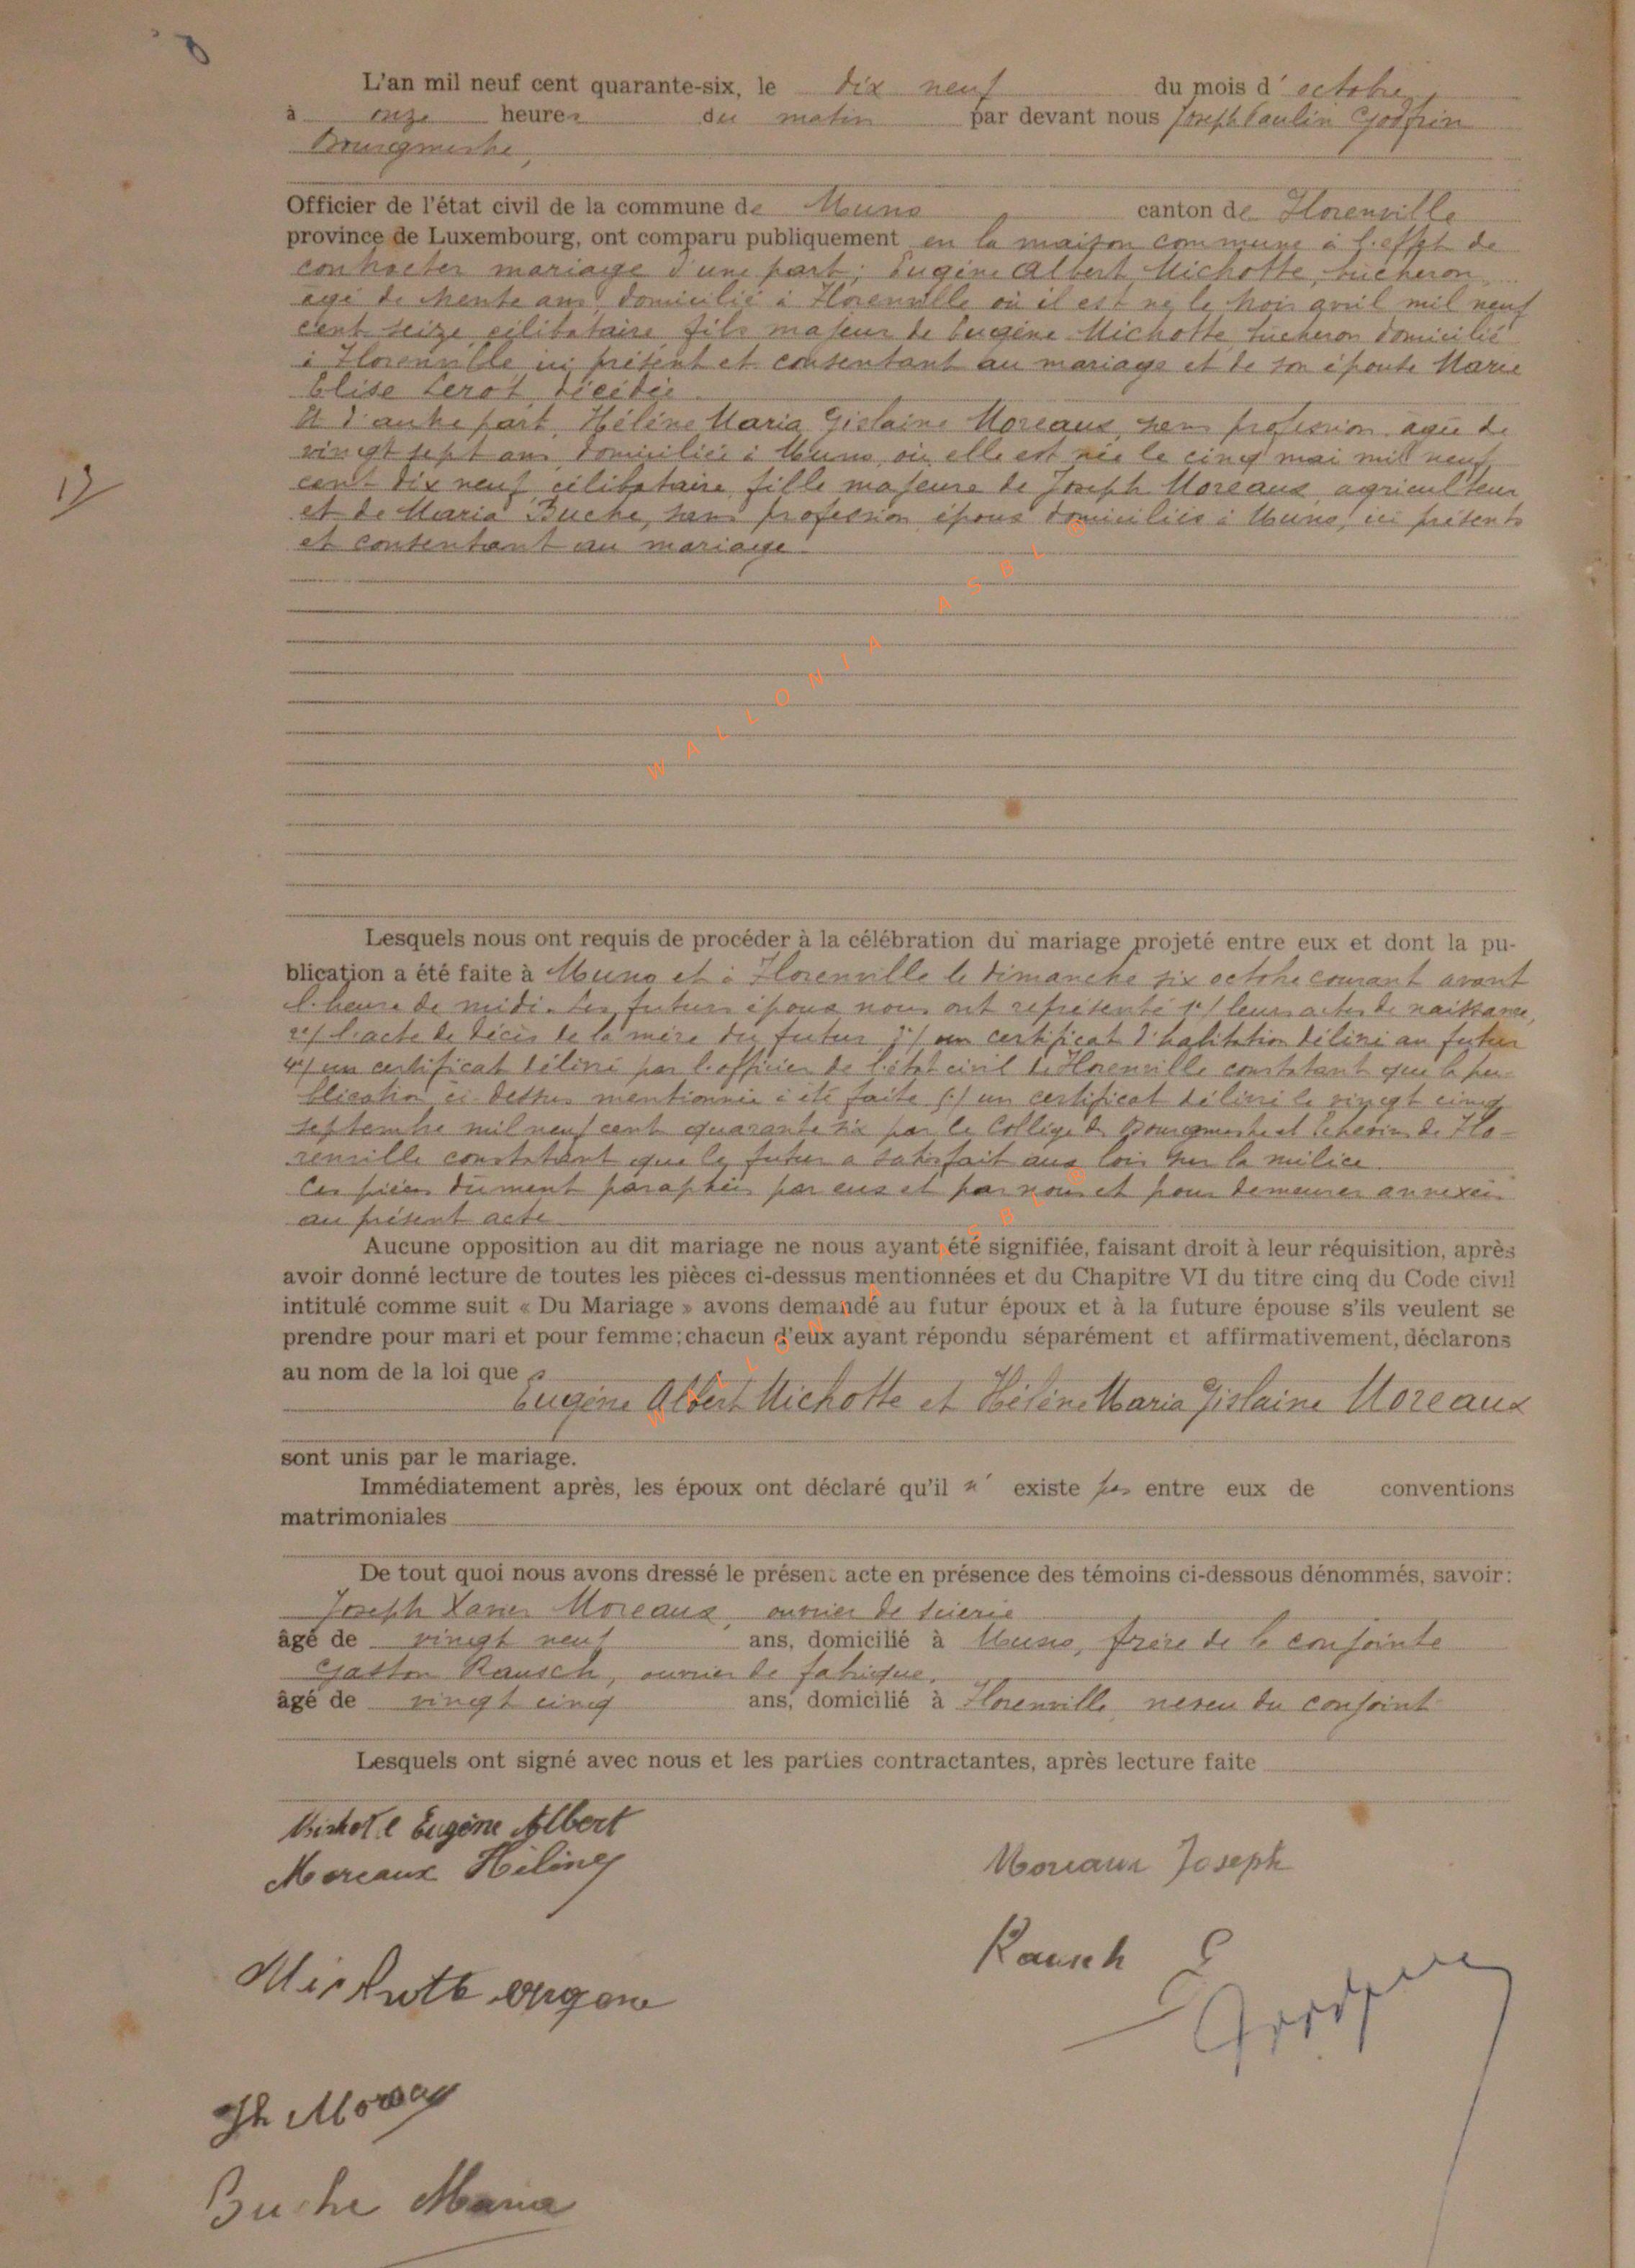 L'an mil neuf cent quarante-six, le dix neuf du mois d'octobre,
à onze heures du matin par devant nous Joseph Paulin Godfrin
Bourgmestre,
Officier de l'état civil de la commune de Muno canton de Florenville
province de Luxembourg, ont comparu publiquement en la maison commune à l'effet de
contracter mariage d'une part, Eugène Albert Michotte, bûcheron
agé de trente ans, domicilié à Florenville où il est né le trois avril mil neuf
cent seize, célibataire fils majeur de Eugène Michotte bûcheron domicilié
à Florenville ici présent et consentant au mariage et de son épouse Marie
Elise Lerot décédée.
Et d'autre part, Hélène Maria Gislaine Moreaux, sans profession agée de
vingt sept ans domiciliée à Muno, où elle est née le cinq mai mil neuf
cent dix neuf, célibataire, fille majeure de Joseph Moreaux agriculteur
et de Maria Buche, sans profession époux domiciliés à Muno, ici présents
et consentant au mariage.
WALLONIA ASBL ®
12
Lesquels nous ont requis de procéder à la célébration du mariage projeté entre eux et dont la pu-
blication a été faite à Muno et à Florenville le dimanche six octobre courant avant
l'heure de midi. Les futurs époux nous ont représenté 1°/ leurs actes de naissance,
2°/ l'acte de décès de la mère du futur 3°/ un certificat d'habitation délivré au futur
4°/ un certificat délivré par l'officier de l'état civil de Florenville constatant que la pu-
blication ci-dessus mentionnée a été faite 5°/ un certificat délivré le vingt cinq
septembre mil neuf cent quarante six par le Collège des Bourgmestre et Echevins de Flo-
renville constatant que le futur a satisfait aux lois sur la milice.
Ces pièces dûment paraphées par eux et par nous et pour demeurer annexées
au présent acte.
Aucune opposition au dit mariage ne nous ayant été signifiée, faisant droit à leur réquisition, après
avoir donné lecture de toutes les pièces ci-dessus mentionnées et du Chapitre VI du titre cinq du Code civil
intitulé comme suit « Du Mariage » avons demandé au futur époux et à la future épouse s'ils veulent se
prendre pour mari et pour femme; chacun d'eux ayant répondu séparément et affirmativement, déclarons
au nom de la loi que
Eugène Albert Michotte et Hélène Maria Gislaine Moreaux
sont unis par le mariage.
Immédiatement après, les époux ont déclaré qu'il n' existe pas entre eux de conventions
matrimoniales
De tout quoi nous avons dressé le présent acte en présence des témoins ci-dessous dénommés, savoir:
Joseph Xavier Moreaux, ouvrier de scierie
âgé de vingt neuf ans, domicilié à Muno, frère de la conjointe
Gaston Rausch, ouvrier de fabrique,
âgé de vingt cinq ans, domicilié à Florenville neveu du conjoint
Lesquels ont signé avec nous et les parties contractantes, après lecture faite
Michotte Eugène Albert
Moreaux Hélène
Moreaux Joseph
Rausch G
Godfrin
Buche Maria